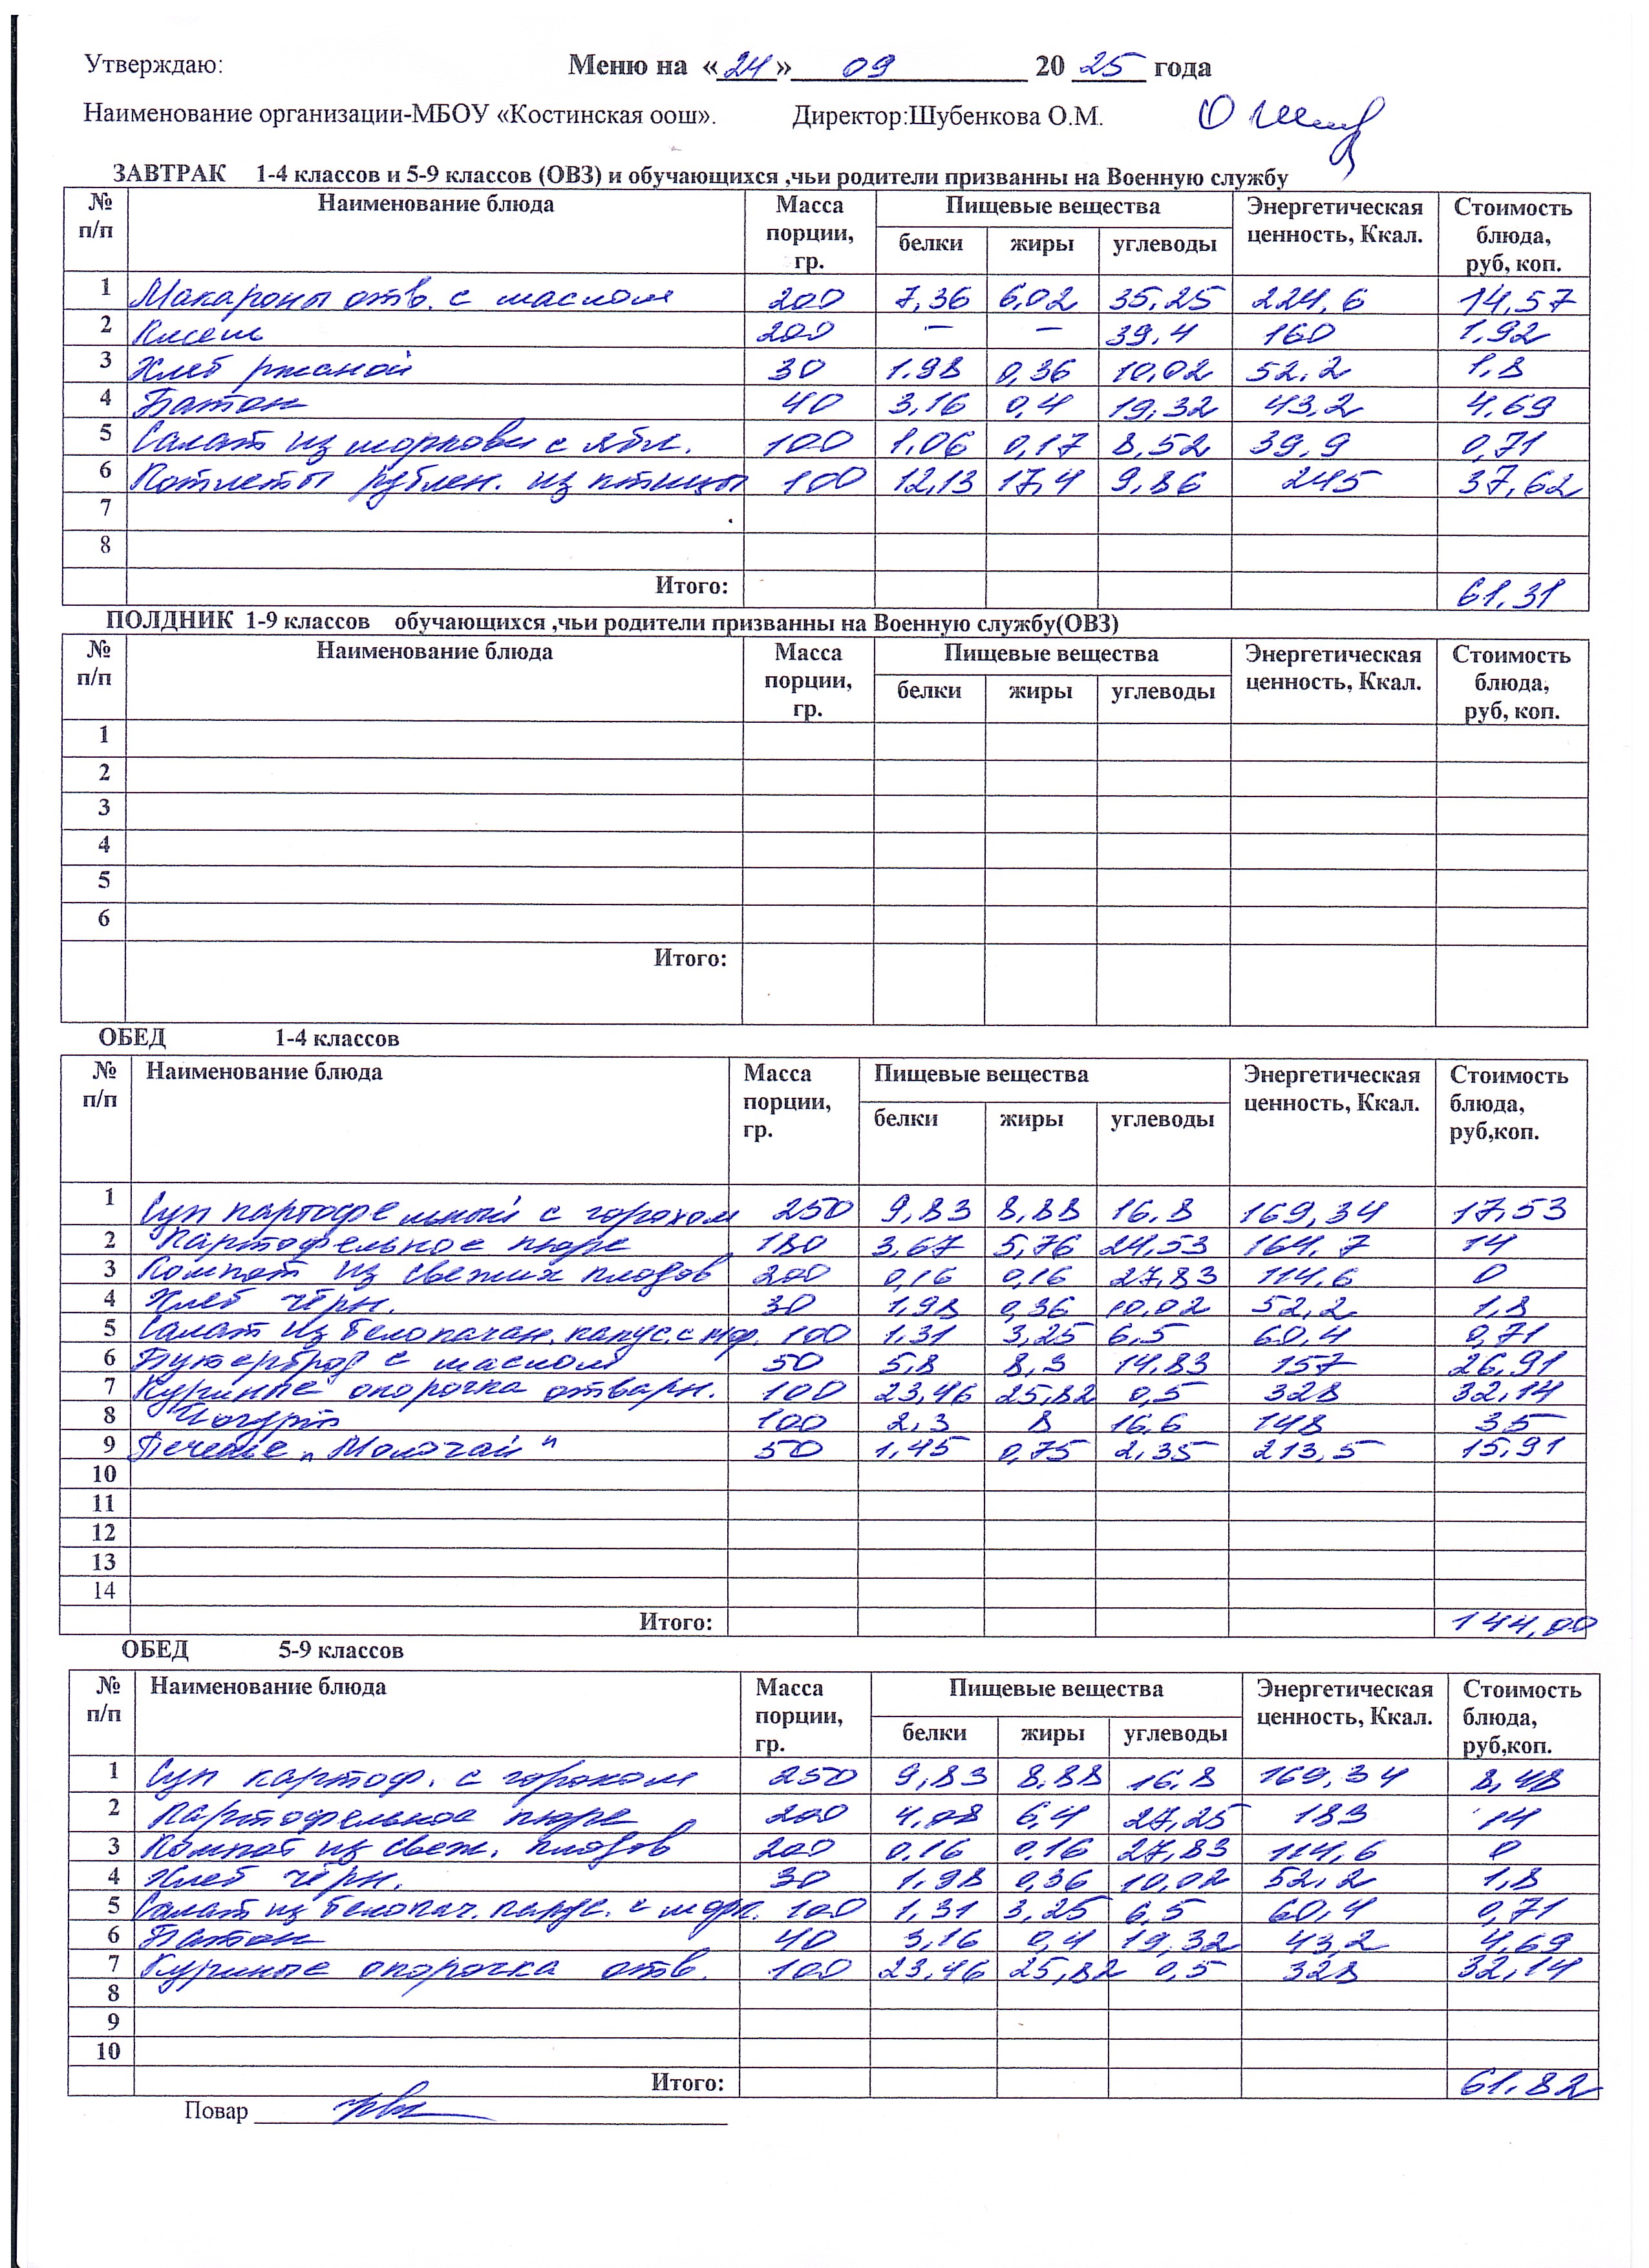 Утверждаю: Меню на «24» 09 20 25 года
Наименование организации-МБОУ «Костинская оош». Директор:Шубенкова О.М.
ЗАВТРАК 1-4 классов и 5-9 классов (ОВЗ) и обучающихся ,чьи родители призванны на Военную службу
№ п/п Наименование блюда Масса порции, гр. Пищевые вещества Энергетическая ценность, Ккал. Стоимость блюда, руб, коп.
белки жиры углеводы
1 Макароны отв. с маслом 200 7,36 6,02 35,25 224,6 14,57
2 Кисель 200 – – 39,4 160 1,92
3 Хлеб ржаной 30 1.98 0,36 10,02 52,2 1,8
4 Батон 40 3,16 0,4 19,32 43,2 4,69
5 Салат из моркови с ябл. 100 1,06 0,17 8,52 39,9 0,71
6 Котлеты рублен. из птицы 100 12,13 17,4 9,86 245 37,62
7
8
Итого: 61,31
ПОЛДНИК 1-9 классов обучающихся ,чьи родители призванны на Военную службу(ОВЗ)
№ п/п Наименование блюда Масса порции, гр. Пищевые вещества Энергетическая ценность, Ккал. Стоимость блюда, руб, коп.
белки жиры углеводы
1
2
3
4
5
6
Итого:
ОБЕД 1-4 классов
№ п/п Наименование блюда Масса порции, гр. Пищевые вещества Энергетическая ценность, Ккал. Стоимость блюда, руб,коп.
белки жиры углеводы
1 Суп картофельный с горохом 250 9,83 8,88 16,8 169,34 17,53
2 Картофельное пюре 180 3,67 5,76 24,53 164,7 14
3 Компот из свежих плодов 200 0,16 0,16 27,83 114,6 0
4 Хлеб чёрн. 30 1,98 0,36 10,02 52,2 1,8
5 Салат из белокачан. капус. с мор. 100 1,31 3,25 6,5 60,4 0,71
6 Бутерброд с маслом 50 5,8 8,3 14,83 157 26,91
7 Куриные окорочка отварн. 100 23,46 25,82 0,5 328 32,14
8 Йогурт 100 2,3 8 16,6 148 35
9 Печенье „Молочай" 50 1,45 0,75 2,35 213,5 15,91
10
11
12
13
14
Итого: 144,00
ОБЕД 5-9 классов
№ п/п Наименование блюда Масса порции, гр. Пищевые вещества Энергетическая ценность, Ккал. Стоимость блюда, руб,коп.
белки жиры углеводы
1 Суп картоф. с горохом 250 9,83 8,88 16,8 169,34 8,48
2 Картофельное пюре 200 4,08 6,4 27,25 183 14
3 Компот из свеж. плодов 200 0,16 0,16 27,83 114,6 0
4 Хлеб чёрн. 30 1,98 0,36 10,02 52,2 1,8
5 Салат из белокач. капус. с морк. 100 1,31 3,25 6,5 60,4 0,71
6 Батон 40 3,16 0,4 19,32 43,2 4,69
7 Куриные окорочка отв. 100 23,46 25,82 0,5 328 32,14
8
9
10
Итого: 61,82
Повар